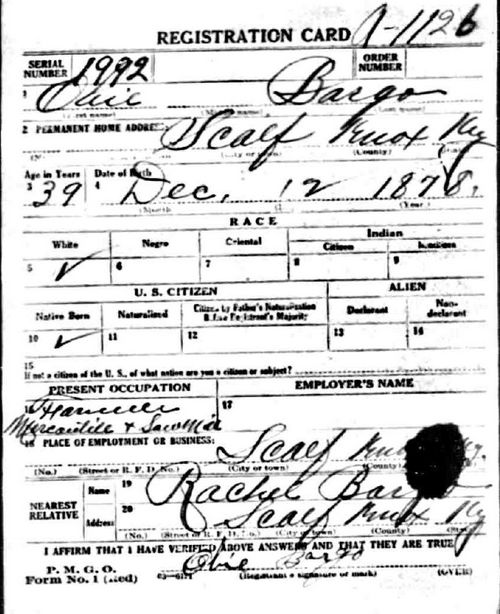 REGISTRATION CARD A-1126
SERIAL NUMBER 1992 ORDER NUMBER
1 Obie Bargo
(First name) (Last name)
2 PERMANENT HOME ADDRESS: Scalf Knox Ky
(No.) (City or town) (County) (State)
Age in Years Date of Birth
3 39 4 Dec. 12 1878.
(Month) (Year)
RACE
White Negro Oriental Indian
Citizen Noncitizen
5 ✓ 6 7 8 9
U. S. CITIZEN ALIEN
Native Born Naturalized Citizen by Father's Naturalization Before Registrant's Majority Declarant Non-declarant
10 ✓ 11 12 13 14
15
If not a citizen of the U. S., of what nation are you a citizen or subject?
PRESENT OCCUPATION EMPLOYER'S NAME
Farmer 17
Mercantile & Saw Mill
18 PLACE OF EMPLOYMENT OR BUSINESS: Scalf Knox Ky.
(No.) (Street or R. F. D. No.) (City or town) (County)
NEAREST RELATIVE Name 19 Rachel Bargo
Address 20 Scalf Knox Ky
(No.) (Street or R. F. D. No.) (City or town) (County) (State)
I AFFIRM THAT I HAVE VERIFIED ABOVE ANSWERS AND THAT THEY ARE TRUE
P. M. G. O. Obie Bargo
Form No. 1 (Red) 03-6171 (Registrant's signature or mark) (OVER)